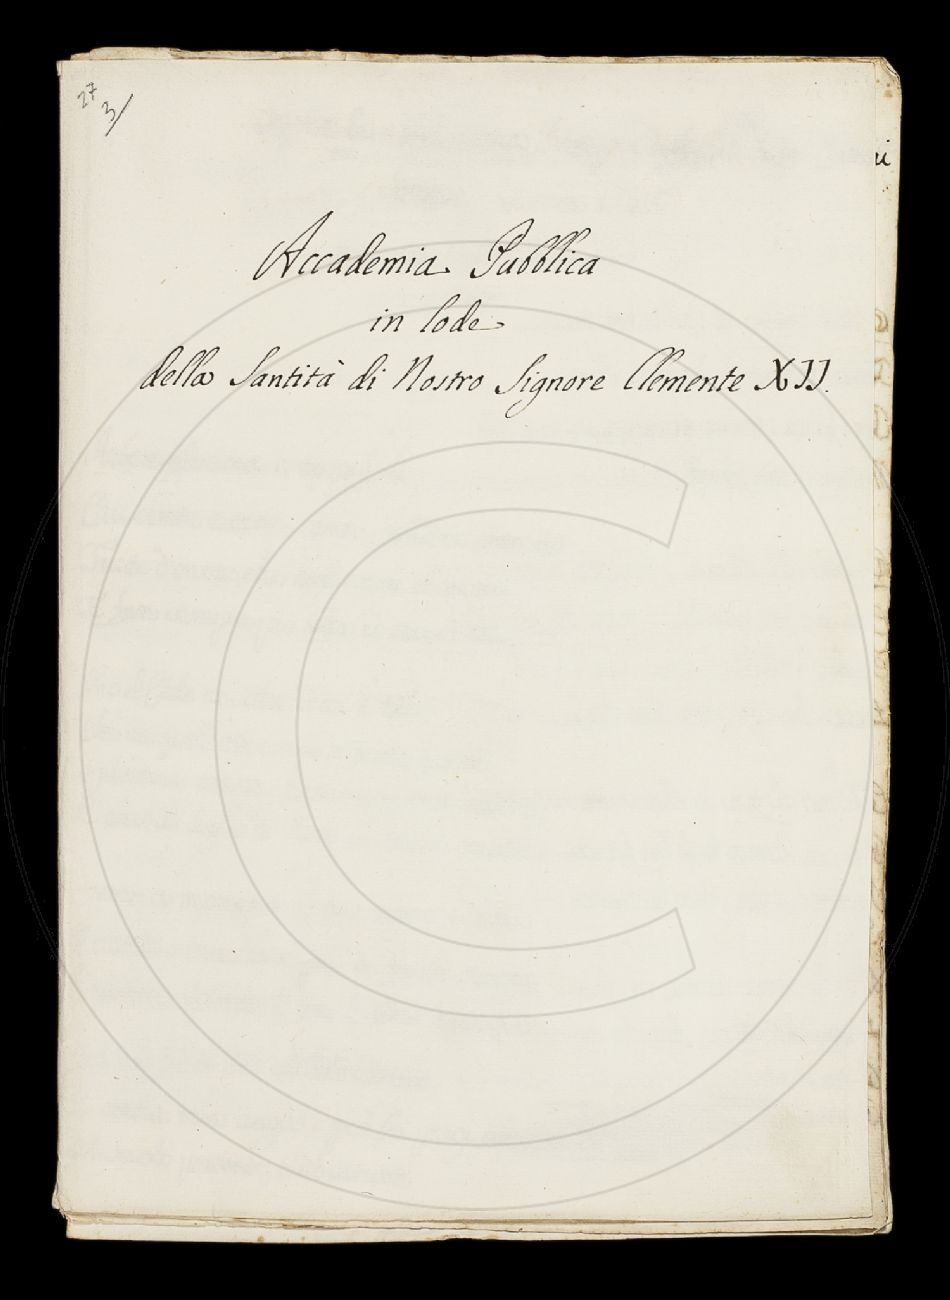 27
3/
ni
Accademia Pubblica
in lode
della Santità di Nostro Signore Clemente XII.